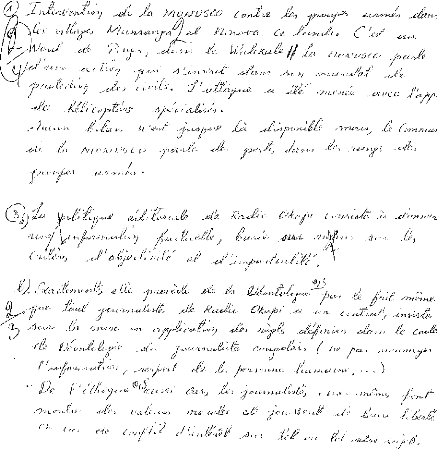 1) Intervention de la MONUSCO contre les groupes armés dans
les villages et Minova ce lundi. C'est au
Nord de, dans le Walikale // la MONUSCO parle
d'une action qui s'inscrit dans son mandat de
protection des civils. L'attaque a été menée avec l'app
des hélicoptères spécialisés.
Aucun bilan n'est jusque là disponible mais, le
de la MONUSCO parle de perte dans les rangs des
groupes armés.
3) La politique éditoriale de Radio Okapi consiste à donner
une information factuelle, basée sur les
critères d'objectivité et d'impartialité.
Exactement, elle procède de la déontologie par le fait même
que tout journaliste de Radio Okapi a un contrat, insiste
sur la mise en application des règles définies dans le code
de Déontologie du journaliste congolais (ne pas
l'information, respect de la personne humaine, ...)
- De l'éthique aussi car, les journalistes eux-mêmes font
montre des valeurs morales et jouissent de leur liberté
en cas de conflit d'intérêt sur tel ou tel autre sujet.